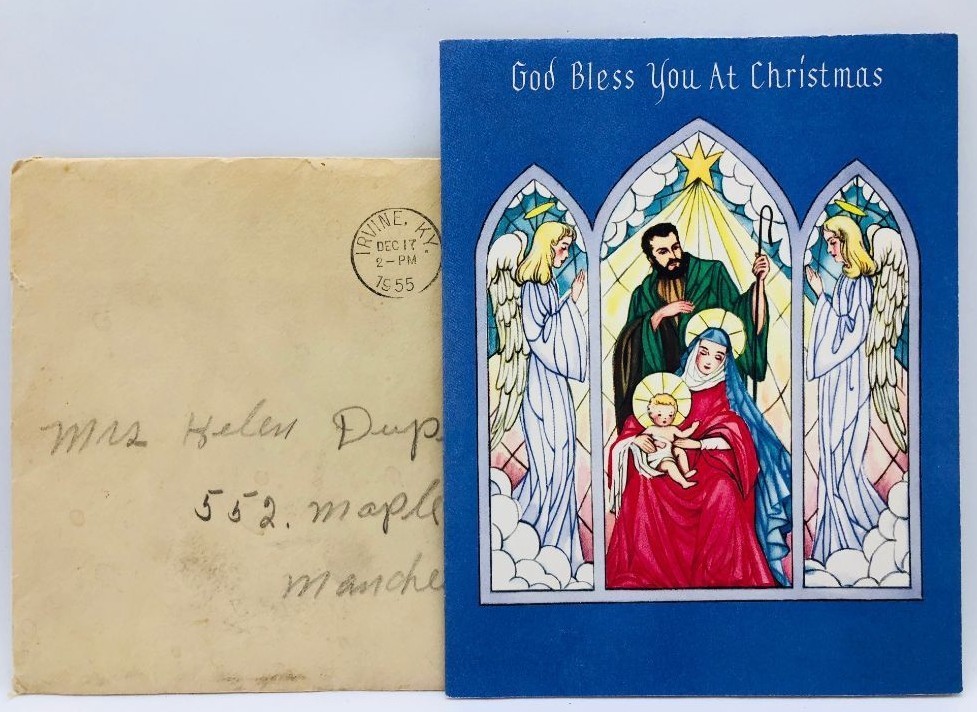 God Bless You At Christmas
IRVINE, KY.
DEC 17
2-PM
1955
Mrs Helen Dup
552. Maple
Manche